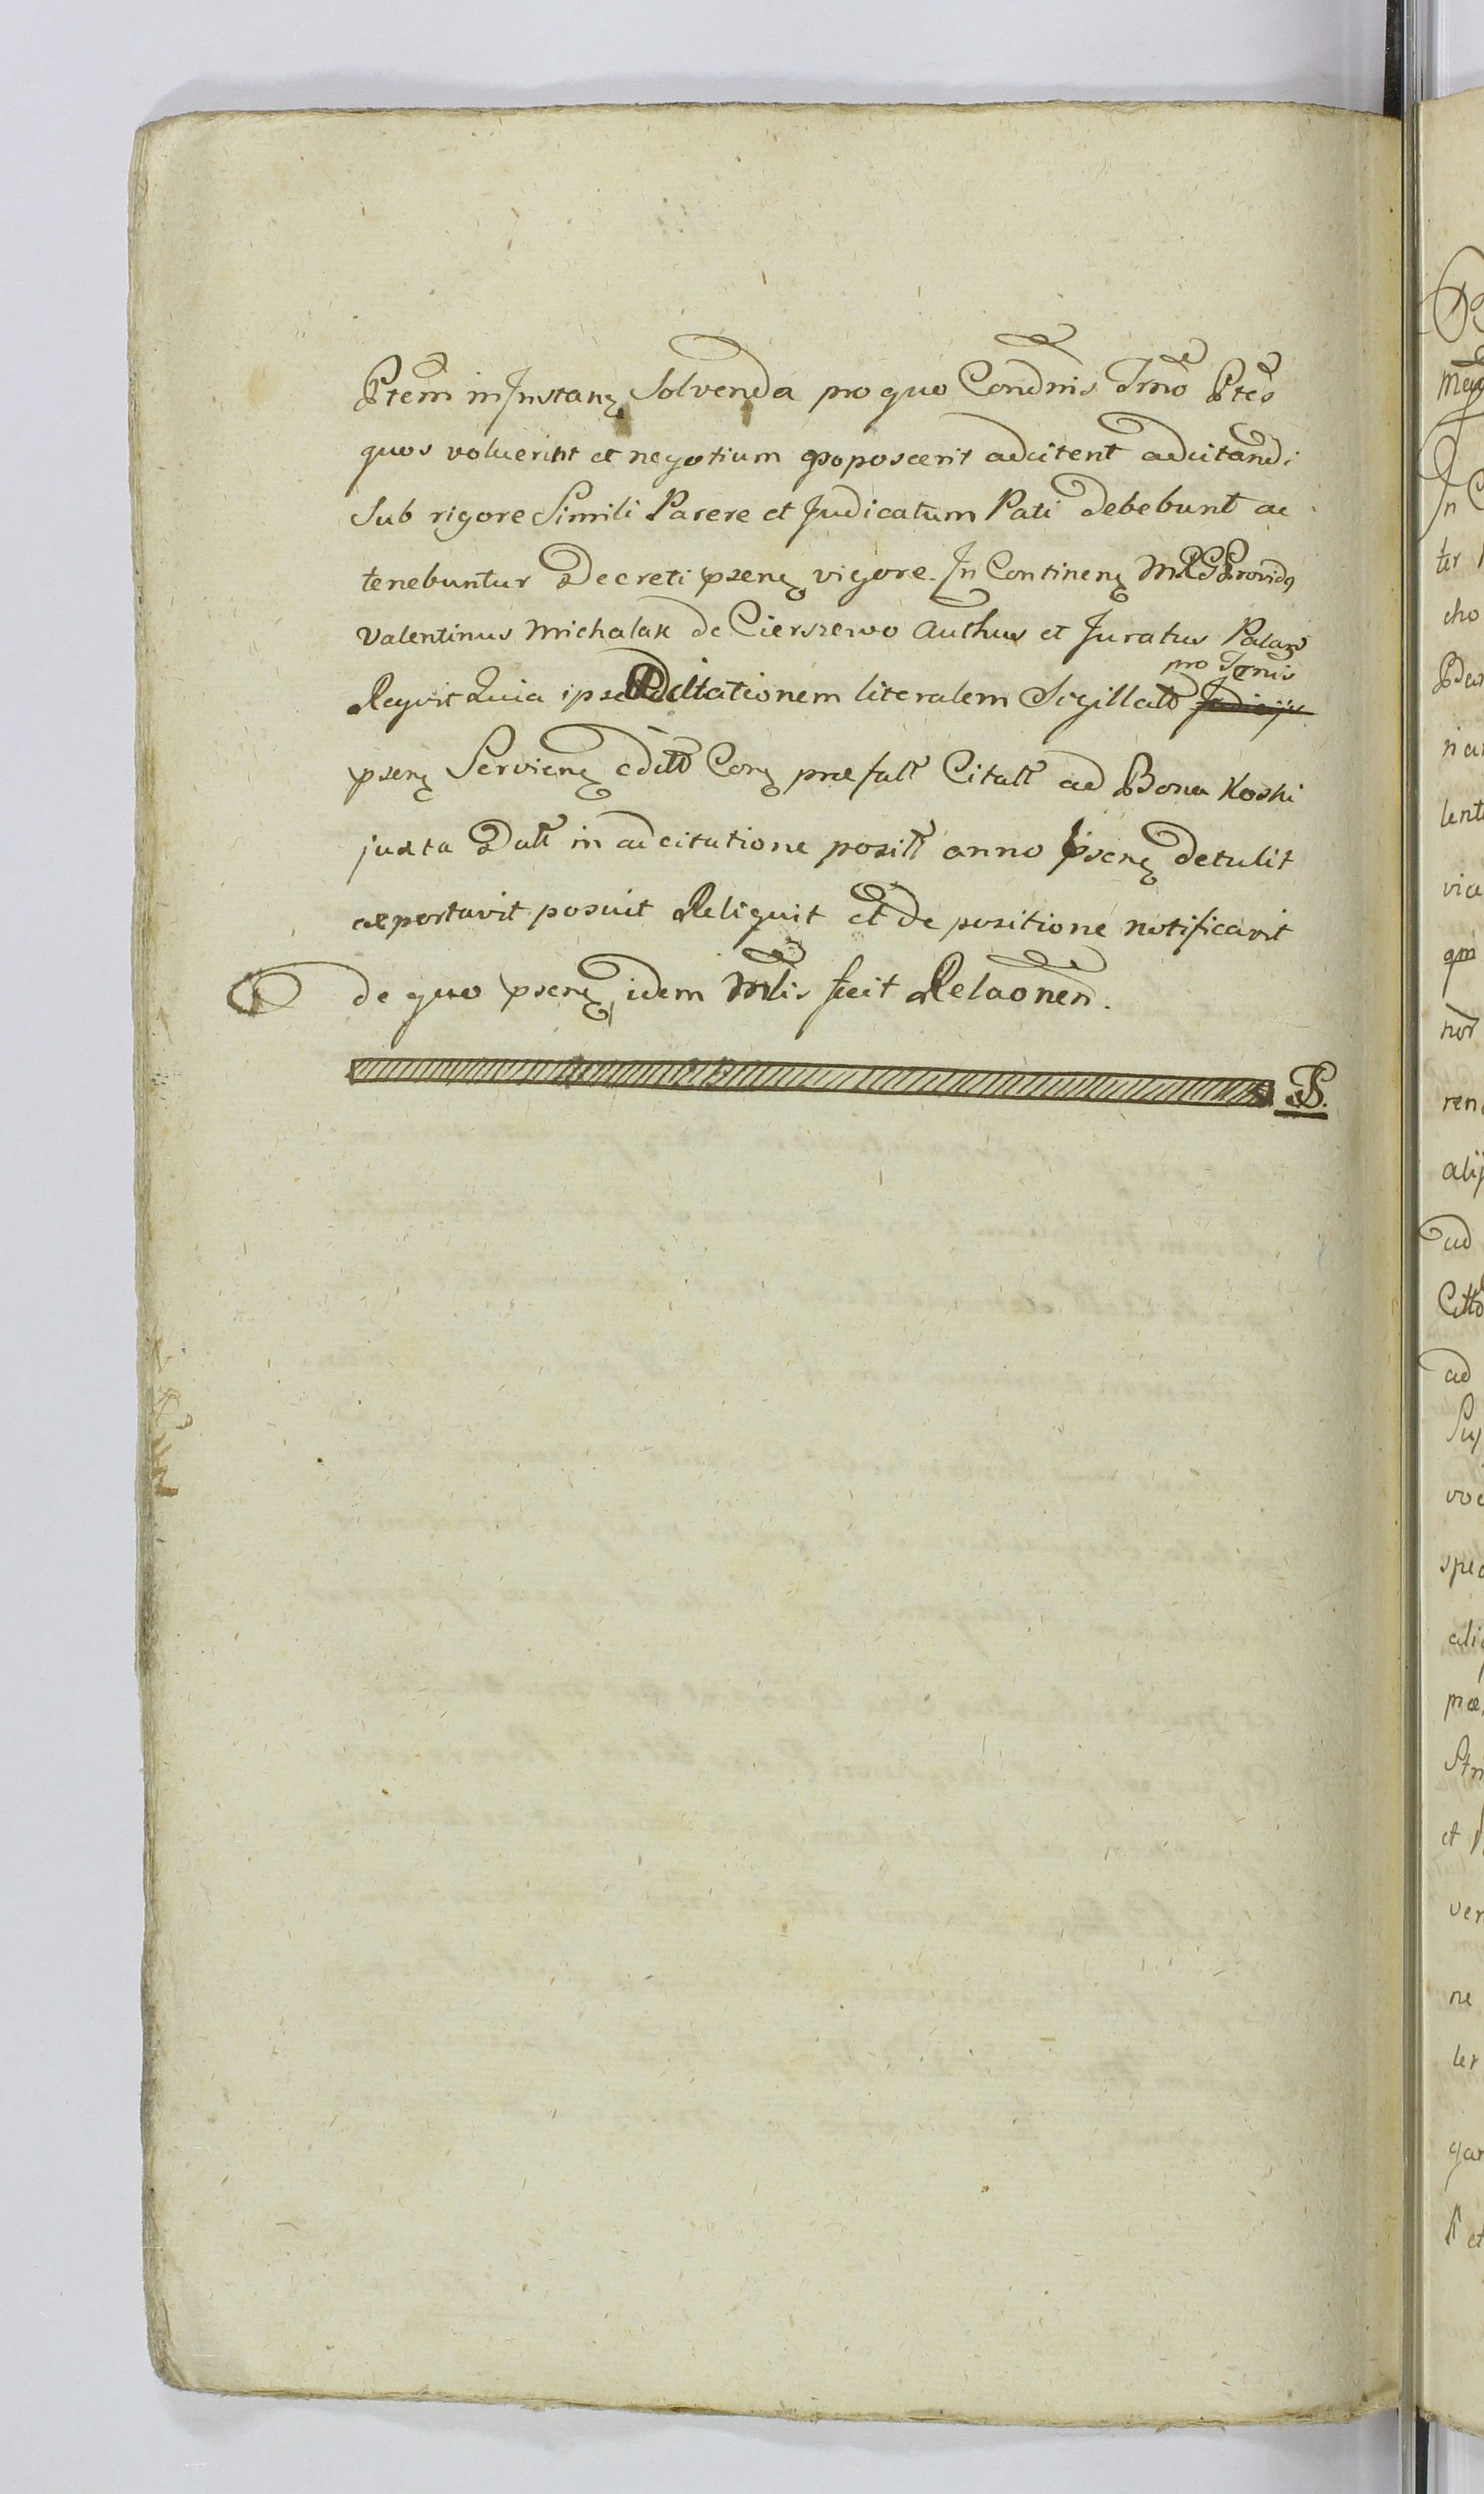 Ptem in Instanz Solvenda pro quo Condnis Trno Ptes
quos voluerint et negotium poposcerit adcitent adcitandi
Sub rigore Simili Parere et Judicatum Pati debebunt ac
tenebuntur Decreti psenz vigore. In Continenz MRG Providq
Valentinus Michalak de Cierszewo Authus et Juratus Palam
pro Trnis
Reqvit Quia ipse Adcitationem literalem Sigillatt
psenz Servienz editt Conz præfatt Citatt ad Bona Koski
juxta Datt in adcitatione positt anno psenz detulit
exportavit posuit Reliquit et de positione notificavit
de quo psenz idem Mlis fecit Relaonem.
JS.
ter
cho
ren
ad
ad
et
ne